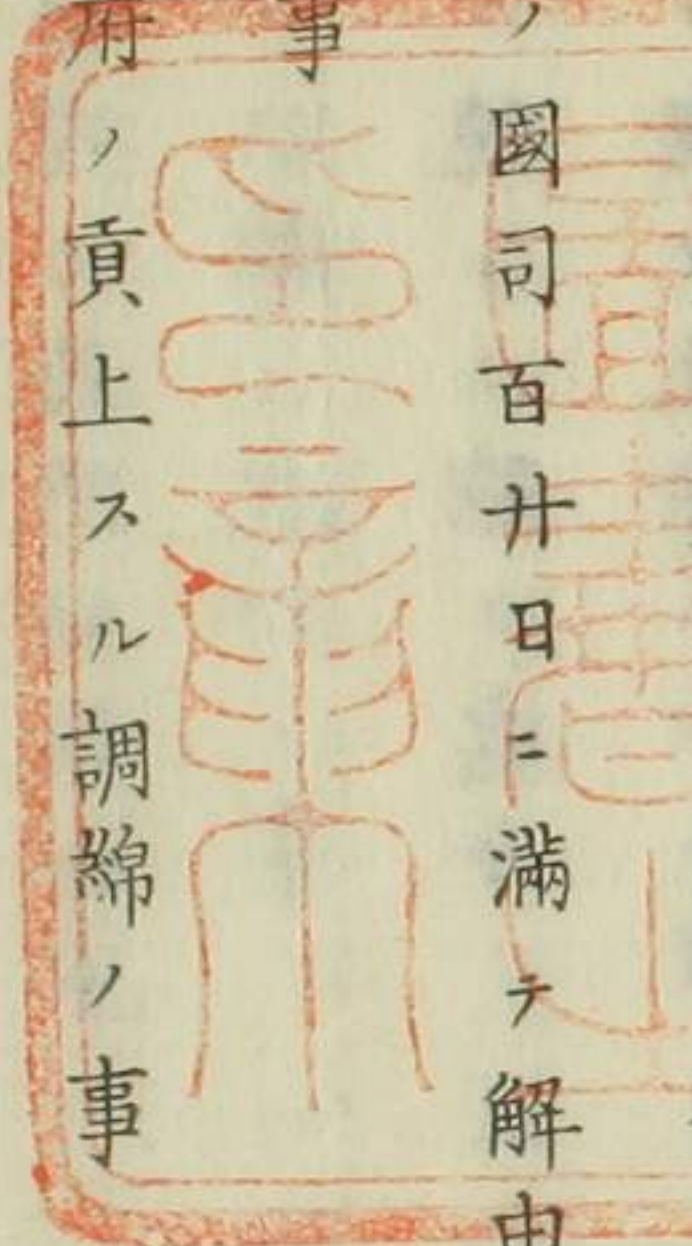 ノ國司百廿日ニ滿テ解由
事
府ノ貢上スル調綿ノ事